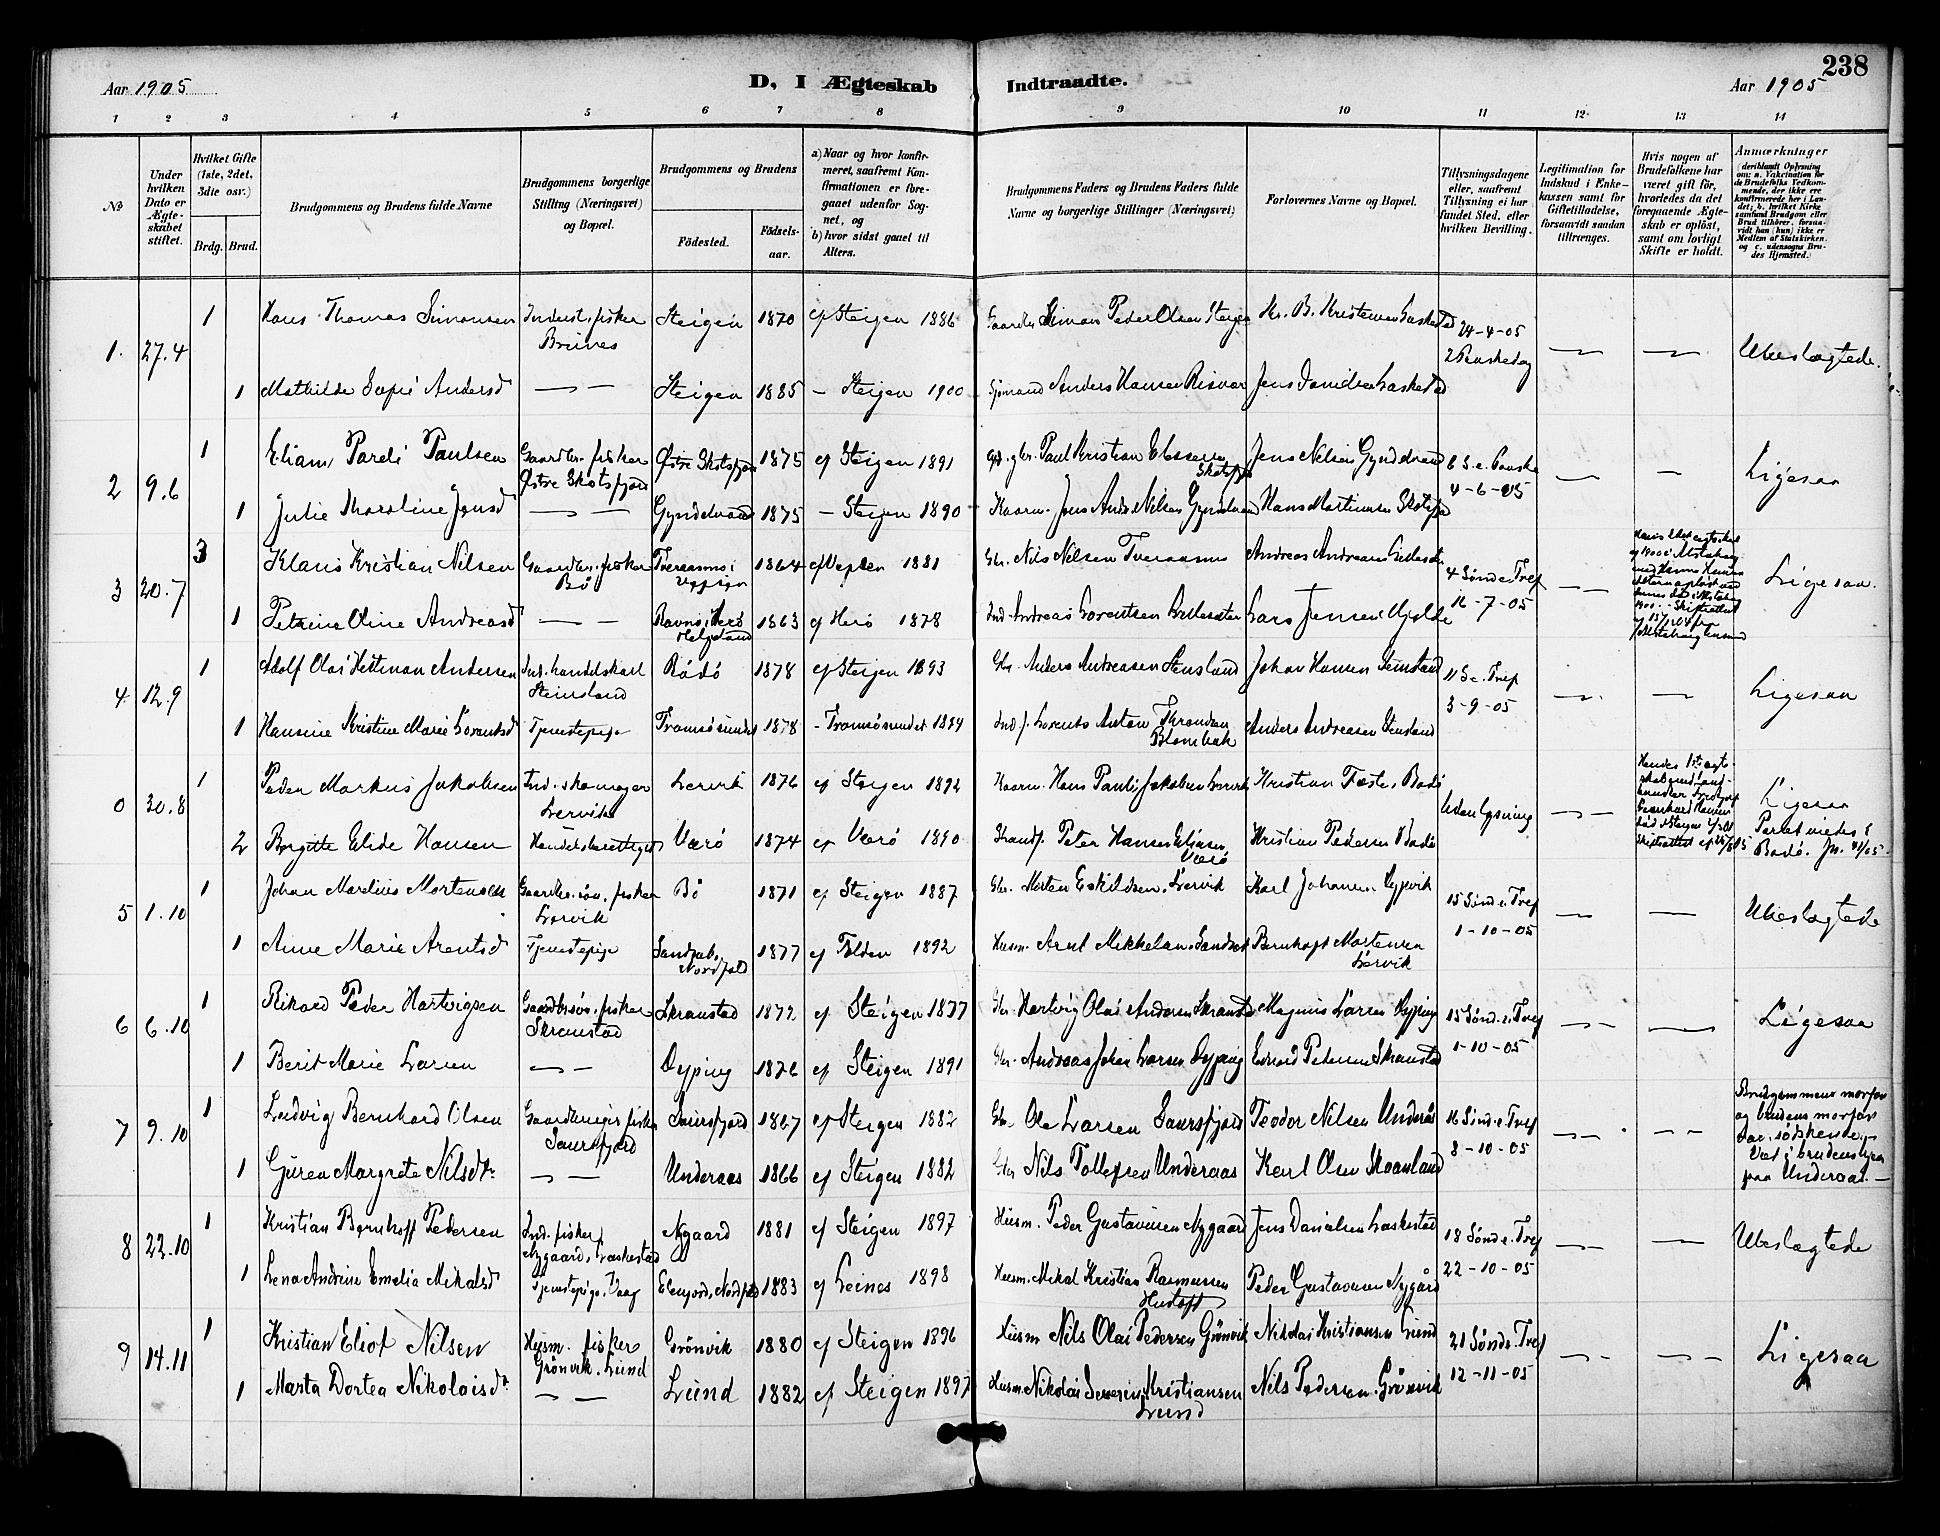 238
Aar 1905
D, I Ægteskab Indtraadte.
Aar 1905
1 2 3 4 5 6 7 8 9 10 11 12 13 14
No
Under hvilken Dato er Ægteskabet stiftet.
Hvilket Gifte (1ste, 2det, 3die osv.)
Brdg. Brud.
Brudgommens og Brudens fulde Navne
Brudgommens borgerlige Stilling (Næringsvei) og Bopæl.
Brudgommens og Brudens
Fødested.
Fødsels-aar.
a) Naar og hvor konfirmeret, saafremt Konfirmationen er foregaaet udenfor Sognet, og
b) hvor sidst gaaet til Alters.
Brudgommens Faders og Brudens Faders fulde Navne og borgerlige Stillinger (Næringsvei)
Forlovernes Navne og Bopæl.
Tillysningsdagene eller, saafremt Tillysning ei har fundet Sted, efter hvilken Bevilling.
Legitimation for Indskud i Enkekassen samt for Giftetilladelse, forsaavidt saadan tiltrænges.
Hvis nogen af Brudefolkene har været gift før, hvorledes da det foregaaende Ægteskab er opløst, samt om lovligt Skifte er holdt.
Anmærkninger
(deriblandt Oplysning om: a. Vakcination for de Brudefolks Vedkommende, der ikke ere konfirmerede her i Landet; b. hvilket Kirkesamfund Brudgom eller Brud tilhører, forsaavidt han (hun) ikke er Medlem af Statskirken. og c. udensogns Brudes Hjemsted.)
1. 27.4 1 Hans Thomas Simonsen Inderst. fisker Steigen 1870 cf Steigen 1886 Gaardbr. Simon Peder Olsen Steigen Kr. B. Kristensen Laskestad 24-4-05
Brines 2 Paaskedag Ubeslægtede.
1 Mathilde Sofie Andersd — Steigen 1885 — Steigen 1900 Sjømand Anders Hansen Risvær Jens Danielsen Laskestad
2 9.6 1 Eliam Pareli Paulsen Gaardbr. fisker Østre Skotsfjord 1875 cf Steigen 1891 Paul Kristian Jens Nilsen Gyndelvand 6 S. e. Paaske
Østre Skotsfjord 4-6-05 Ligesaa
1 Julie Karoline Jensd — Gyndelvand 1875 — Steigen 1890 Jens Andr. Nilsen Gyndelvand Hans Martinsen Skotsfj.
3 20.7 3 Klaus Kristian Nilsen Gaardbr. fisker Tveraamo i 1864 cf 1881 Gbr. Nils Nilsen Tveraamo Andreas Andreasen 4 Sønd e. Tref
Bø 16-7-05 Ligesaa.
1 Petrine Oline Andreasd — Ravnø i Herø 1863 cf Herø 1878 Ind. Andreas Lorentsen Lars Jensen
Helgeland
4 12.9 1 Adolf Olai Hetman Andersen Ind. handelskarl Rödö 1878 cf Steigen 1893 Gbr. Anders Andreasen Stensland Johan Hansen Stensland 11 S. e. Tref
Steinsland 3-9-05 Ligesaa
1 Hansine Kristine Marie Lorentsd Tjenestepige Tromsøsundet 1878 — Tromsösundet 1894 Ind. f. Lorents Anton Throndsen Anders Andreasen Stensland
0 30.8 1 Peder Markus Jakobsen Ind. skomager Lervik 1876 cf Steigen 1892 Hans Pauli Jakobsen Lervik Kristian Bodø
Lervik Uden lysning Ligesaa
2 Birgitte Elide Hansen Værö 1874 cf Værö 1890 Peter Hansen Kristian Pedersen Bodø
Værö
5 1.10 1 Johan Mardius Mortensen Gaardbr. søn. fisker Bö 1871 cf Steigen 1887 Gbr. Morten Eskildsen Lervik Karl Johansen 15 Sønd e. Tref
Lervik 1-10-05 Ubeslægtede
1 Anne Marie Arentsd Tjenestepige 1877 cf Folden 1892 Husm. Arnt Mikkelsen Bernhoft Mortensen
Nordfold Lervik
6 6.10 1 Rikard Peder Hartvigsen Gaardbrsøn. fisker Skranstad 1872 cf Steigen 1887 Gbr. Hartvig Olai Andersen Skranstad Magnus Larsen Dyping 15 Sønd e. Tref
Skranstad 1-10-05 Ligesaa
1 Berit Marie Larsen — Dyping 1876 cf Steigen 1891 Gbr. Andreas Johan Larsen Dyping Edvard Pedersen Skranstad
7 9.10 1 Ludvig Bernhard Olsen Saursfjord 1867 cf Steigen 1882 Gbr. Ole Larsen Saursfjord Teodor Nilsen Underaas 16 Sønd e. Tref
Saursfjord 8-10-05
Brudgommens morfar
og brudens morfar
var södskende.
Viet i brudens hjem
paa Underaas.
1 Guren Margrete Nilsdtr. — Underaas 1866 cf Steigen 1882 Gbr Nils Tollefsen Underaas Karl Olsen Skoanland
8 22.10 1 Kristian Bernhoff Pedersen Ind. fisker Nygaard 1881 cf Steigen 1897 Husm. Peder Gustavsen Nygaard Jens Danielsen Laskestad 18 Sønd e. Tref
Nygaard, Laskestad 22-10-05 Ubeslægtede
1 Lena Andrine Emelia Mikalsd Tjenestepige, Vaag Nordfold 1883 cf Leines 1898 Husm. Mikal Kristian Rasmussen Peder Gustavsen Nygård
9 14.11 1 Kristian Eliot Nilsen Husm. fisker Grönvik 1880 cf Steigen 1896 Husm Nils Olai Pedersen Grönvik Nikolai Kristiansen Lund 21 Sønd e. Tref
Grönvik. Lund 12-11-05 Ligesaa
1 Marta Dortea Nikolaisdtr — Lund 1882 cf Steigen 1897 Husm. Nikolai Severin Kristiansen Nils Pedersen Grönvik
Lund